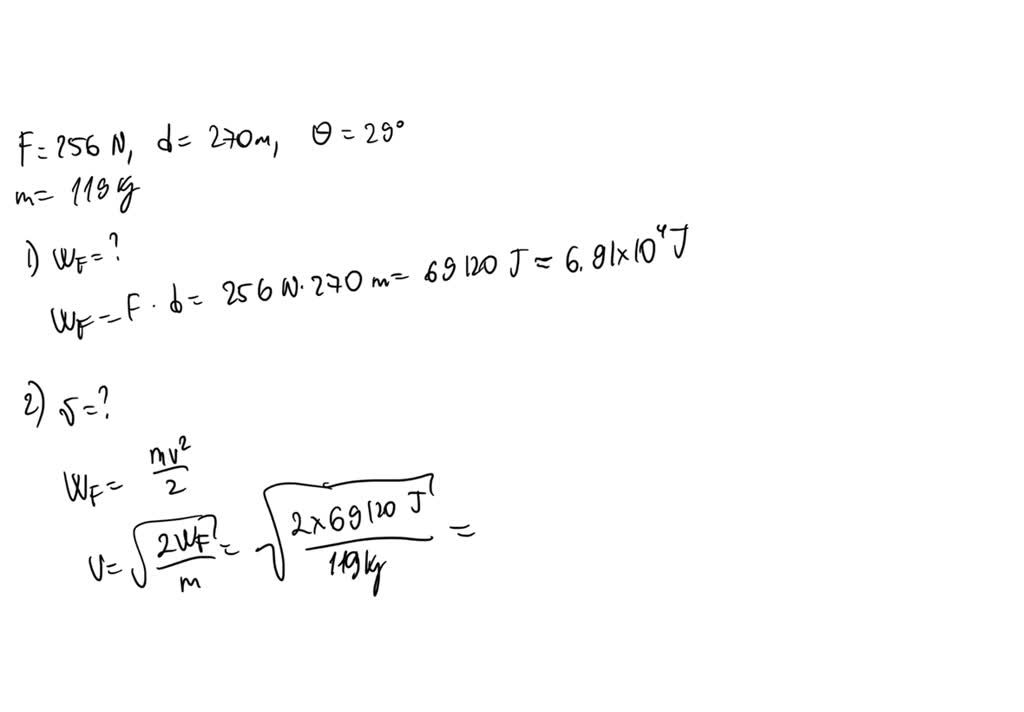 F = 256 N, d = 270 m, θ = 29°
m = 119 kg
1) W_F = ?
W_F = F · d = 256 N · 270 m = 69120 J ≈ 6.91 × 10⁴ J
2) v = ?
W_F = mv²/2
v = √(2W_F/m) = √(2 × 69120 J/119 kg) =